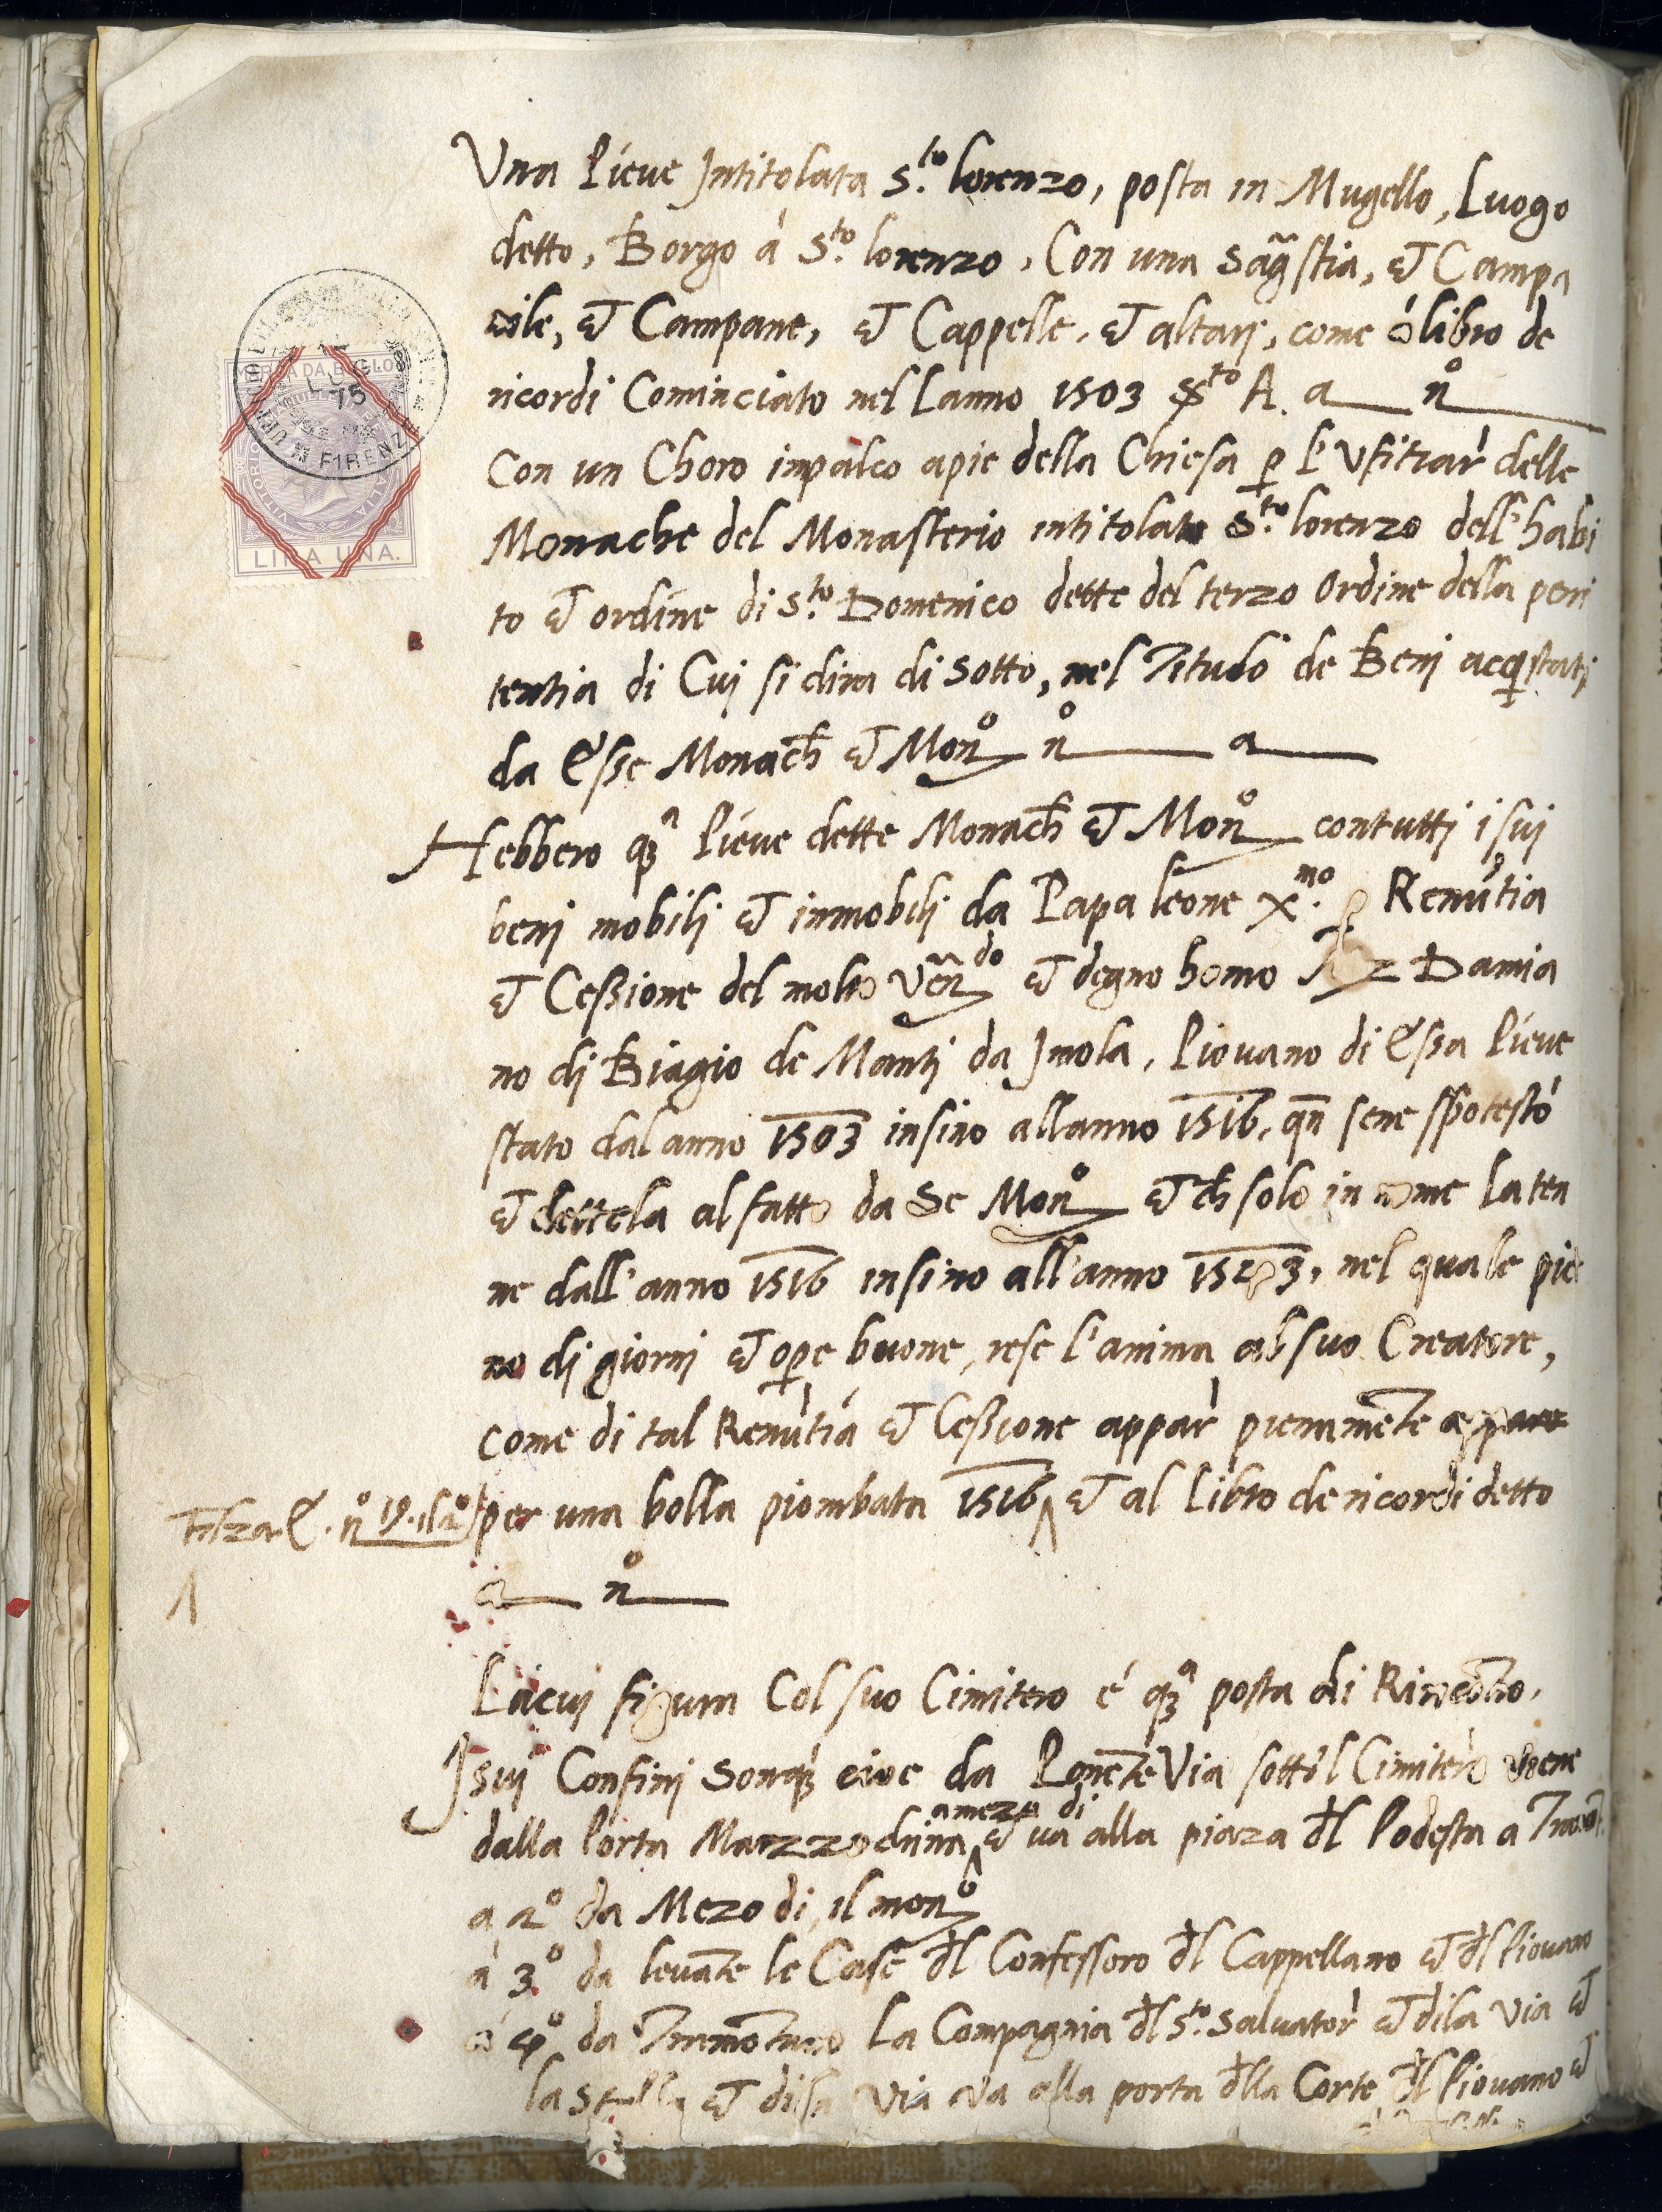 Una Pieve Intitolata S.to lorenzo, posta in Mugello, Luogo
detto, Borgo à S.to lorenzo, Con una sag̃stia, et Campa
nile, et Campane, et Cappelle, et altarj, come ó libro de
ricordi Cominciato nel lanno 1503 S.to A. a n°
Con un Choro inpalco apie della Chiesa p l'Vfitiar delle
Monache del Monasterio intitolato S.to lorenzo dell'habi
to et ordine di S.to Domenico dette del terzo Ordine della peni
tentia di Cui si dira di sotto, nel Titulo de Benj acqstatj
da Esse Monach et Mon° n° a
Hebbero qa Pieve dette Monach et Mon° contutti i suj
benj mobilj et inmobili da Papa leone X.mo p Renutia
et Cessione del molto Ven do et degno homo Damia
no dj Biagio de Mantj da Jmola, Piovano di Essa Pieve
stato dal anno 1503 insino allanno 1516, qn sene spotestò
et dettela al fatto da Se Mon° et ch solo in nome la ten
ne dall'anno 1516 insino all'anno 1523, nel quale pie
no dj giornj et ope buone, rese l'anima al suo Creatore,
come di tal Renutia et Cessione appar pienamente
per una bolla piombata 1516 et al Libro de ricordi detto
Filza E. n° 19.
a n°
La cuj figura Col suo Cimitero é qa posta di Rincontro.
J suj Confinj son cioe da Ponente Via sotto'l Cimitero viene
amezo di
dalla Porta Marzzochina et va alla piaza dl Podesta a
a 2° da Mezo di, il mon°
a 3° da levante le Case dl Confessoro dl Cappellano et dl Piovano
a 4° da Tramontano La Compagnia dl S.to Salvator et dila via et
la et dila via va alla porta dlla Corte dl Piovano et
MARCA DA BOLLO
VITTORIO EMANUELE II RE D'ITALIA
LIRA UNA.
LUG
75
FIRENZE